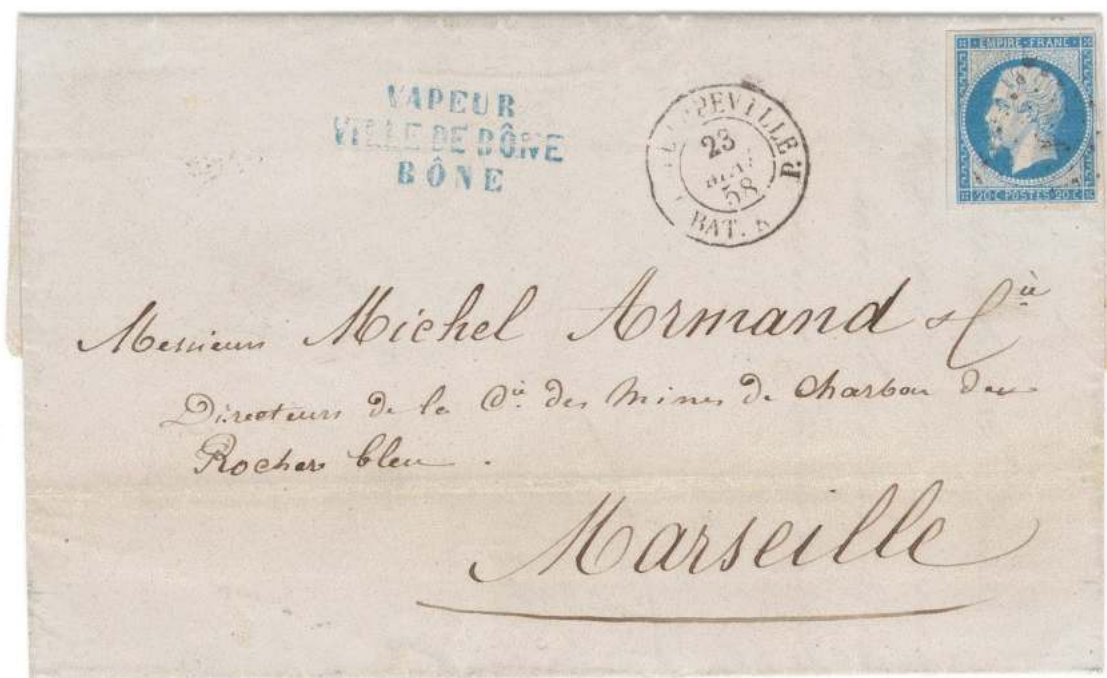 VAPEUR
VILLE DE BÔNE
BÔNE
PPEVILLE
23
58
BAT.
EMPIRE · FRANC
20·C·POSTES·20·C
Messieurs Michel Armand & Cie
Directeurs de la Cie des Mines de Charbon des
Rochers bleu.
Marseille